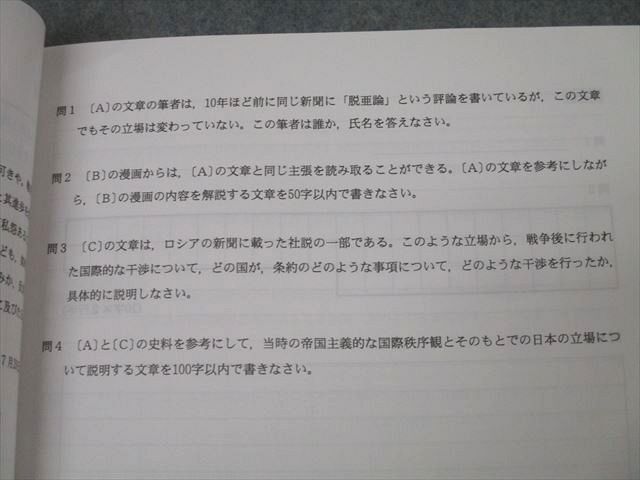 問1 〔A〕の文章の筆者は，10年ほど前に同じ新聞に「脱亜論」という評論を書いているが，この文章
でもその立場は変わっていない。この筆者は誰か，氏名を答えなさい。
問2 〔B〕の漫画からは，〔A〕の文章と同じ主張を読み取ることができる。〔A〕の文章を参考にしなが
ら，〔B〕の漫画の内容を解説する文章を50字以内で書きなさい。
問3 〔C〕の文章は，ロシアの新聞に載った社説の一部である。このような立場から，戦争後に行われ
た国際的な干渉について，どの国が，条約のどのような事項について，どのような干渉を行ったか，
具体的に説明しなさい。
問4 〔A〕と〔C〕の史料を参考にして，当時の帝国主義的な国際秩序観とそのもとでの日本の立場につ
いて説明する文章を100字以内で書きなさい。